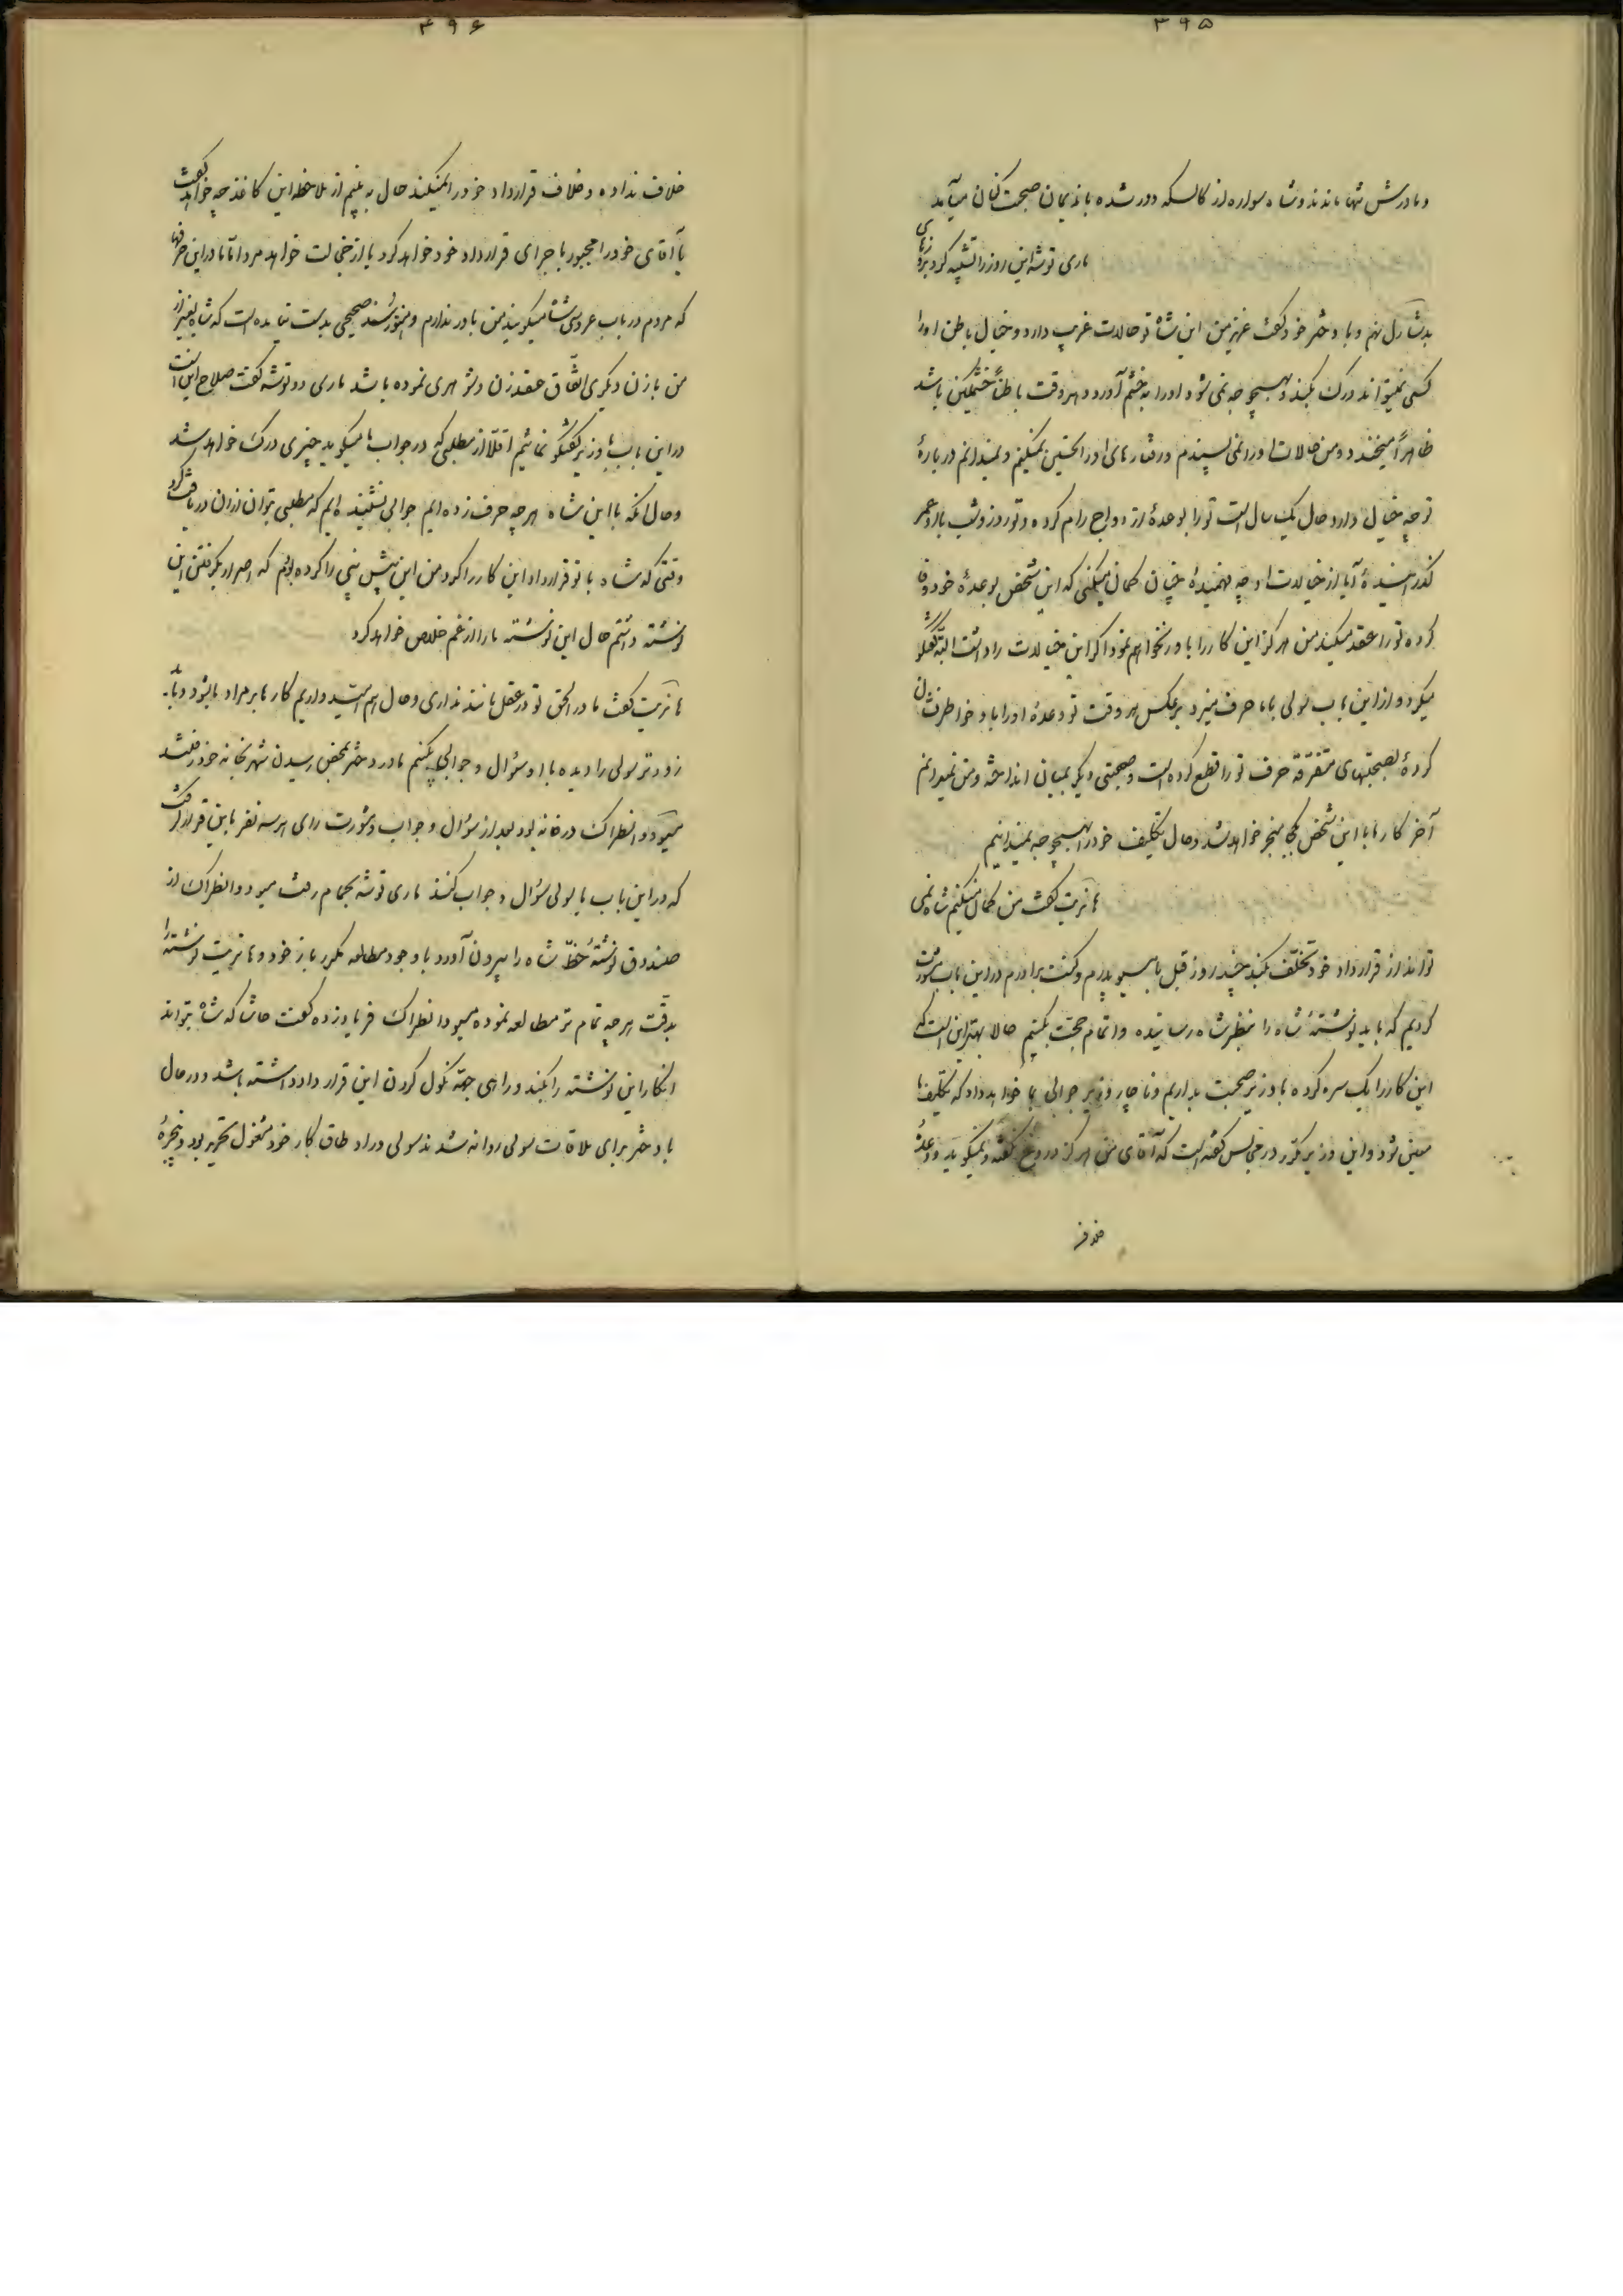 ۳۹۵
و مادرش تنها ماندند و شاه سواره از کالسکه دور شده با ندیمان صحبت کنان میآید
ماری توشه این روز را تشبیه کرد بروزهای
شارل نهم و با دختر خود گفت عزیز من این شاه تو حالات غریب دارد و خیال باطن او را
کسی نمیتواند درک بکند و بهیچوجه نمی شود او را به خشم آورد و هر وقت باطناً خشمگین باشد
ظاهراً میخندد و من حالات او را نمی پسندم و رفتارهای او را تحسین نمیکنم و نمیدانم در بارهٔ
تو چه خیال دارد حال یک سال است تو را بوعدهٔ ازدواج رام کرده و تو روز و شب با او عمر
گذرانیدهٔ آیا از خیالات او چه فهمیدهٔ چنان گمان میکنی که این شخص بوعدهٔ خود وفا
کرده تو را عقد میکند من هرگز این کار را باور نخواهم نمود اگر این خیالات را داشت البته گفتگو
میکرد و از این باب سولی با ما حرف میزد برعکس هر وقت تو وعدهٔ او را با و خاطر نشان
کردهٔ بصحبتهای متفرقه حرف تو را قطع کرده است و صحبتی دیگر بمیان انداخته و من نمیدانم
آخر کار ما با این شخص بکجا منجر خواهد شد و حال تکلیف خود را بهیچوجه نمیدانیم
هانریت گفت من گمان نمیکنم شاه نمی
تواند از قرارداد خود تخلف بکند چند روز قبل با مسیو پدرم و کنت برادرم در این باب مشورت
کردیم که باید نوشتهٔ شاه را بنظر شاه رسانیده و اتمام حجت بکنیم حالا بهتر این است که
این کار را یک سره کرده با وزیر صحبت بداریم و ناچار وزیر جوابی بما خواهد داد که تکلیف ما
معین شود و این وزیر مکرر در مجالس گفته است که آقای من هرگز دروغ نگفته و نمیگوید و وعدهٔ
۳۹۶
خلاف نداده و خلاف قرارداد خود را نمیکند حال به بینیم از ملاحظه این کاغذ چه خواهد گفت
یا آقای خود را مجبور باجرای قرارداد خود خواهد کرد یا از خجالت خواهد مرد اما ما در این حرفها
که مردم در باب عروسی شاه میگویند من باور ندارم و هنوز سند صحیحی بدست نیامده است که شاه بغیر از
من با زن دیگری اتفاق عقد زن و شوهری نموده باشد ماری دو توشه گفت صلاح این است
در این باب با وزیر گفتگو نمائیم اقلاً از مطلبی که در جواب ما میگوید چیزی درک خواهد شد
و حال آنکه با این شاه هرچه حرف زده ایم جوابی نشنیده ایم که مطلبی بتوان از آن دریافت کرد
وقتی که شاه با تو قرارداد این کار را کرد من این پیش بینی را کرده بودم که اصرار بگرفتن این
نوشته داشتم حال این نوشته ما را از غم خلاص خواهد کرد
هانریت گفت مادر الحق تو در عقل مانند نداری و حال امید داریم کار ما بر مراد ما بشود و باید
زودتر سولی را دیده با او سؤال و جوابی بکنیم مادر و دختر بمحض رسیدن شهر بخانه خود رفتند
مسیو دو انطراک در خانه بود بعد از سؤال و جواب و مشورت رای هر سه نفر باین قرار گرفت
که در این باب با سولی سؤال و جواب کنند ماری توشه بحمام رفت مسیو دو انطراک از
صندوق نوشتهٔ خط شاه را بیرون آورد با وجود مطالعه مکرر باز خود و هانریت نوشته را
بدقت هرچه تمام تر مطالعه نموده مسیو دانطراک فریاد زده گفت حاشا که شاه بتواند
انکار این نوشته را بکند و راهی جهة نکول کردن این قرارداد داشته باشد و در حال
با دختر برای ملاقات سولی روانه شدند سولی در اطاق کار خود مشغول تحریر بود و پنجرهٔ